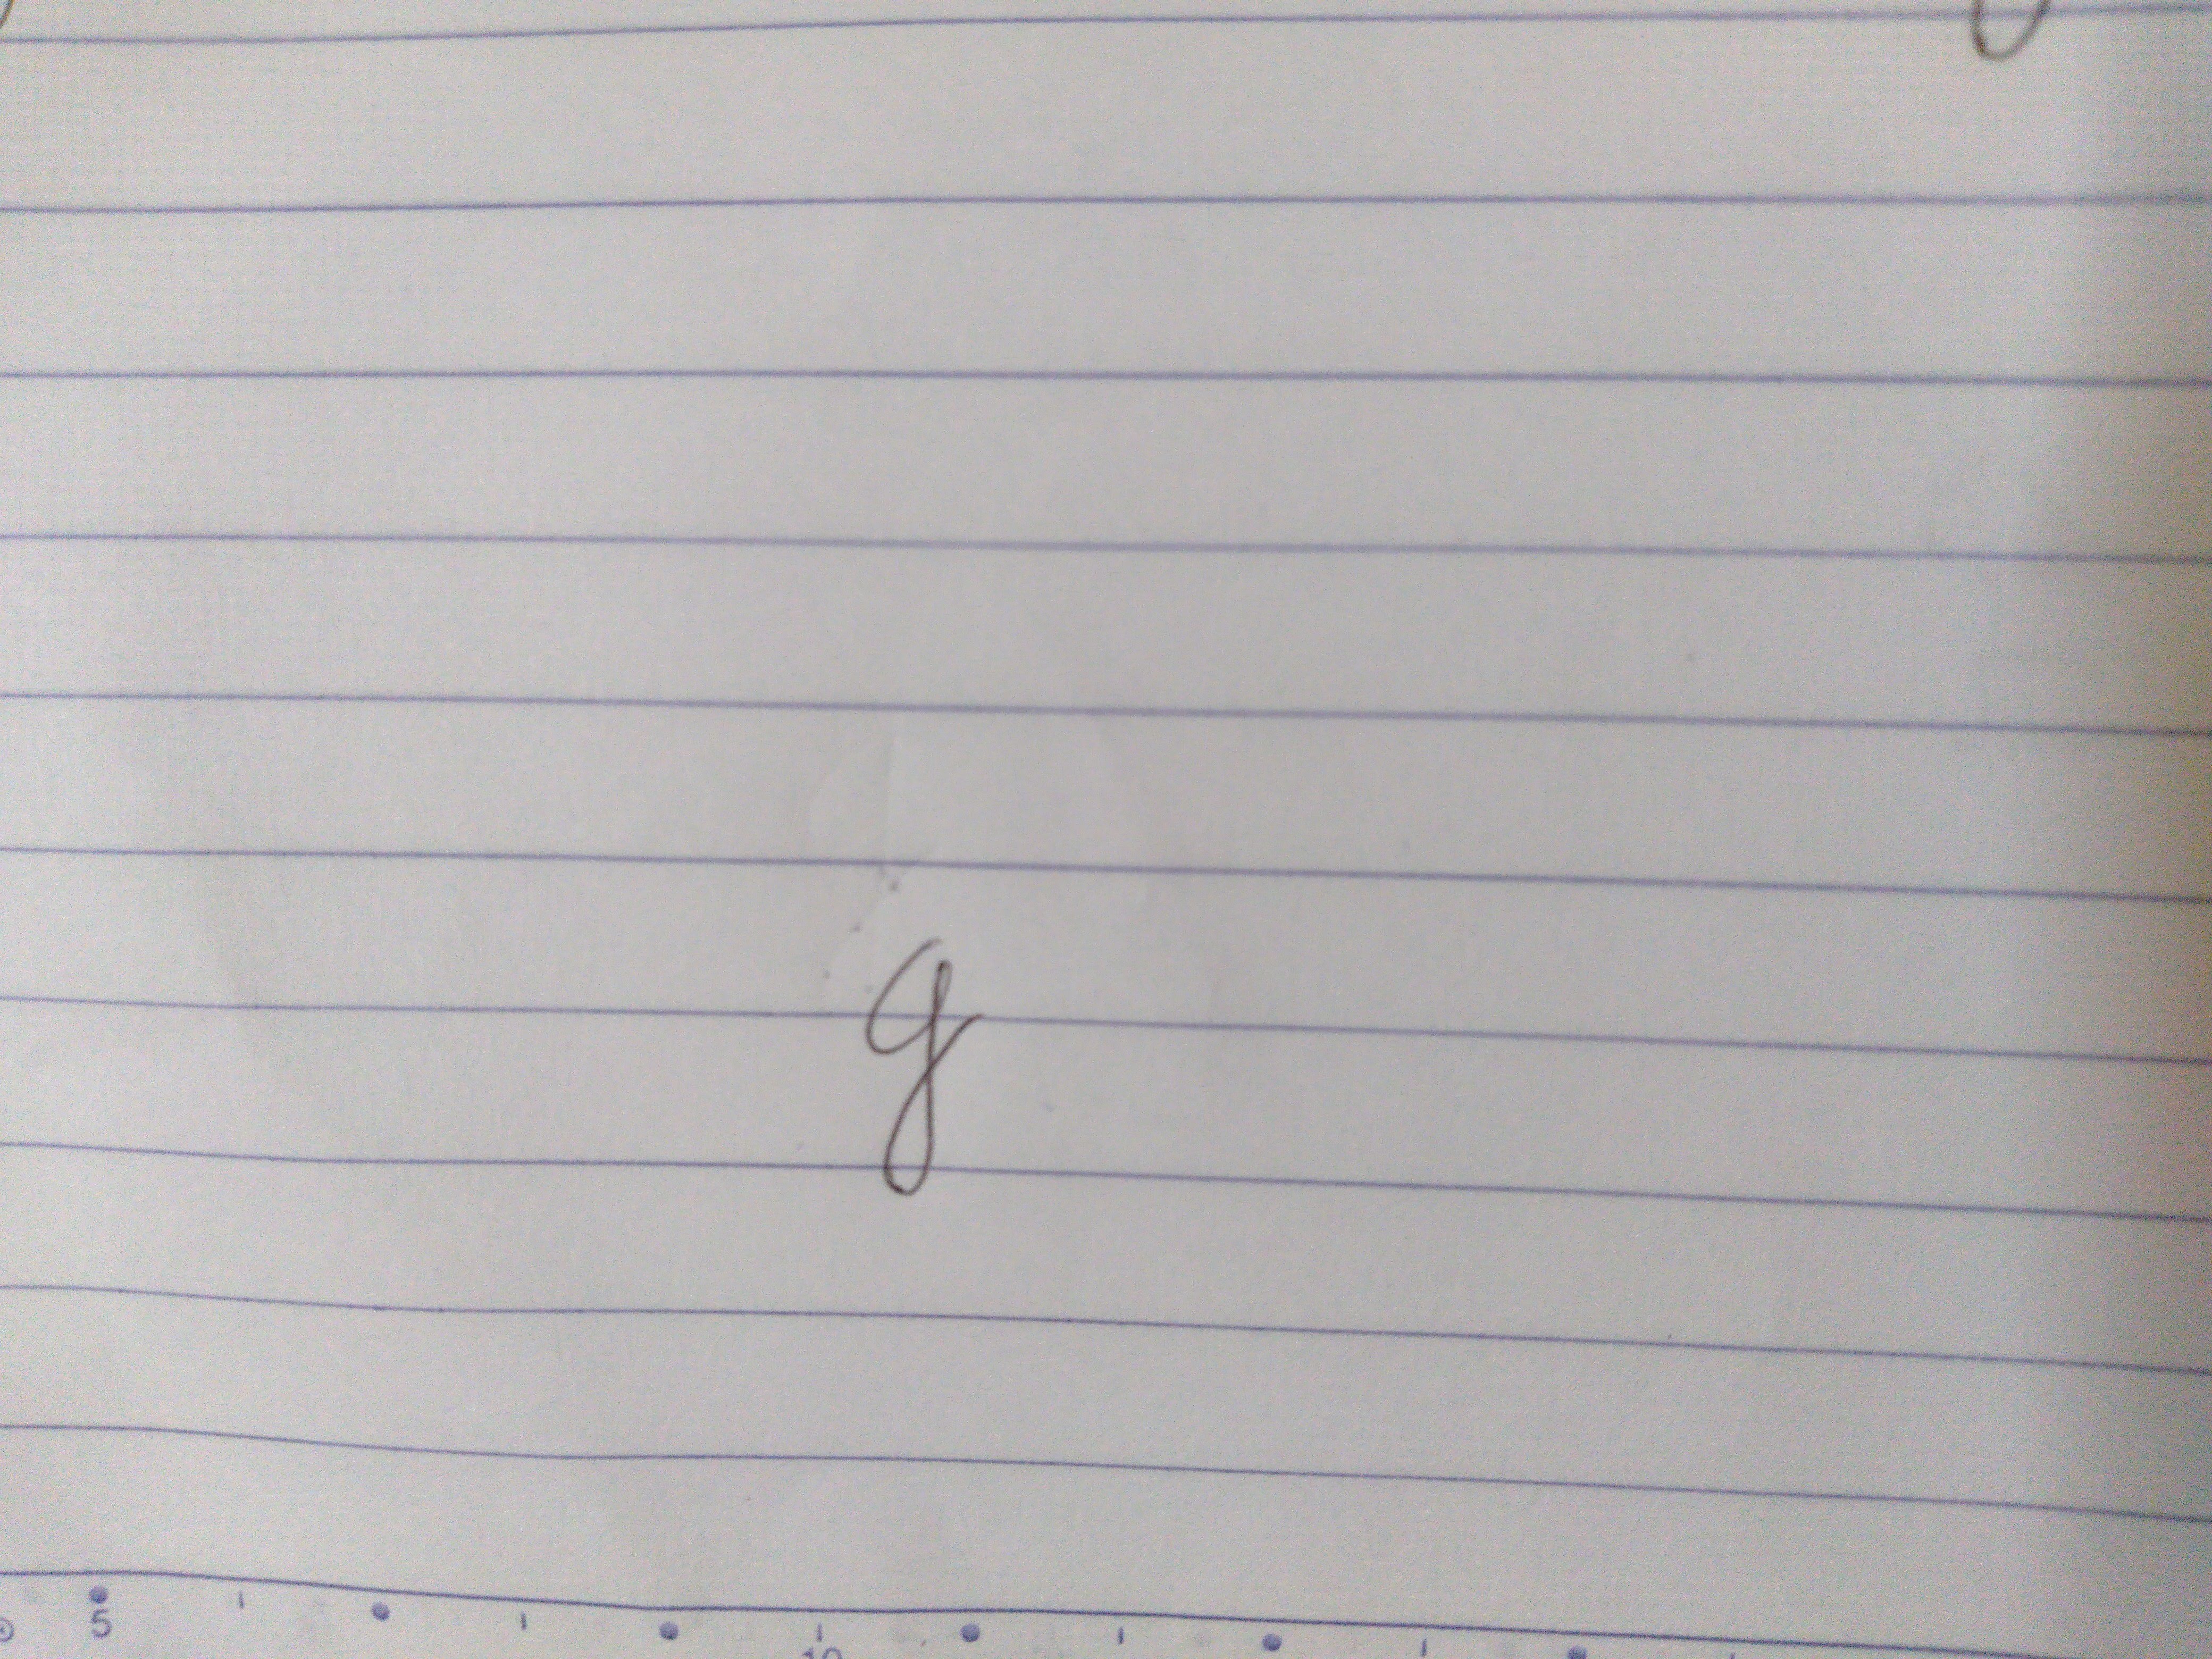 g
5
10